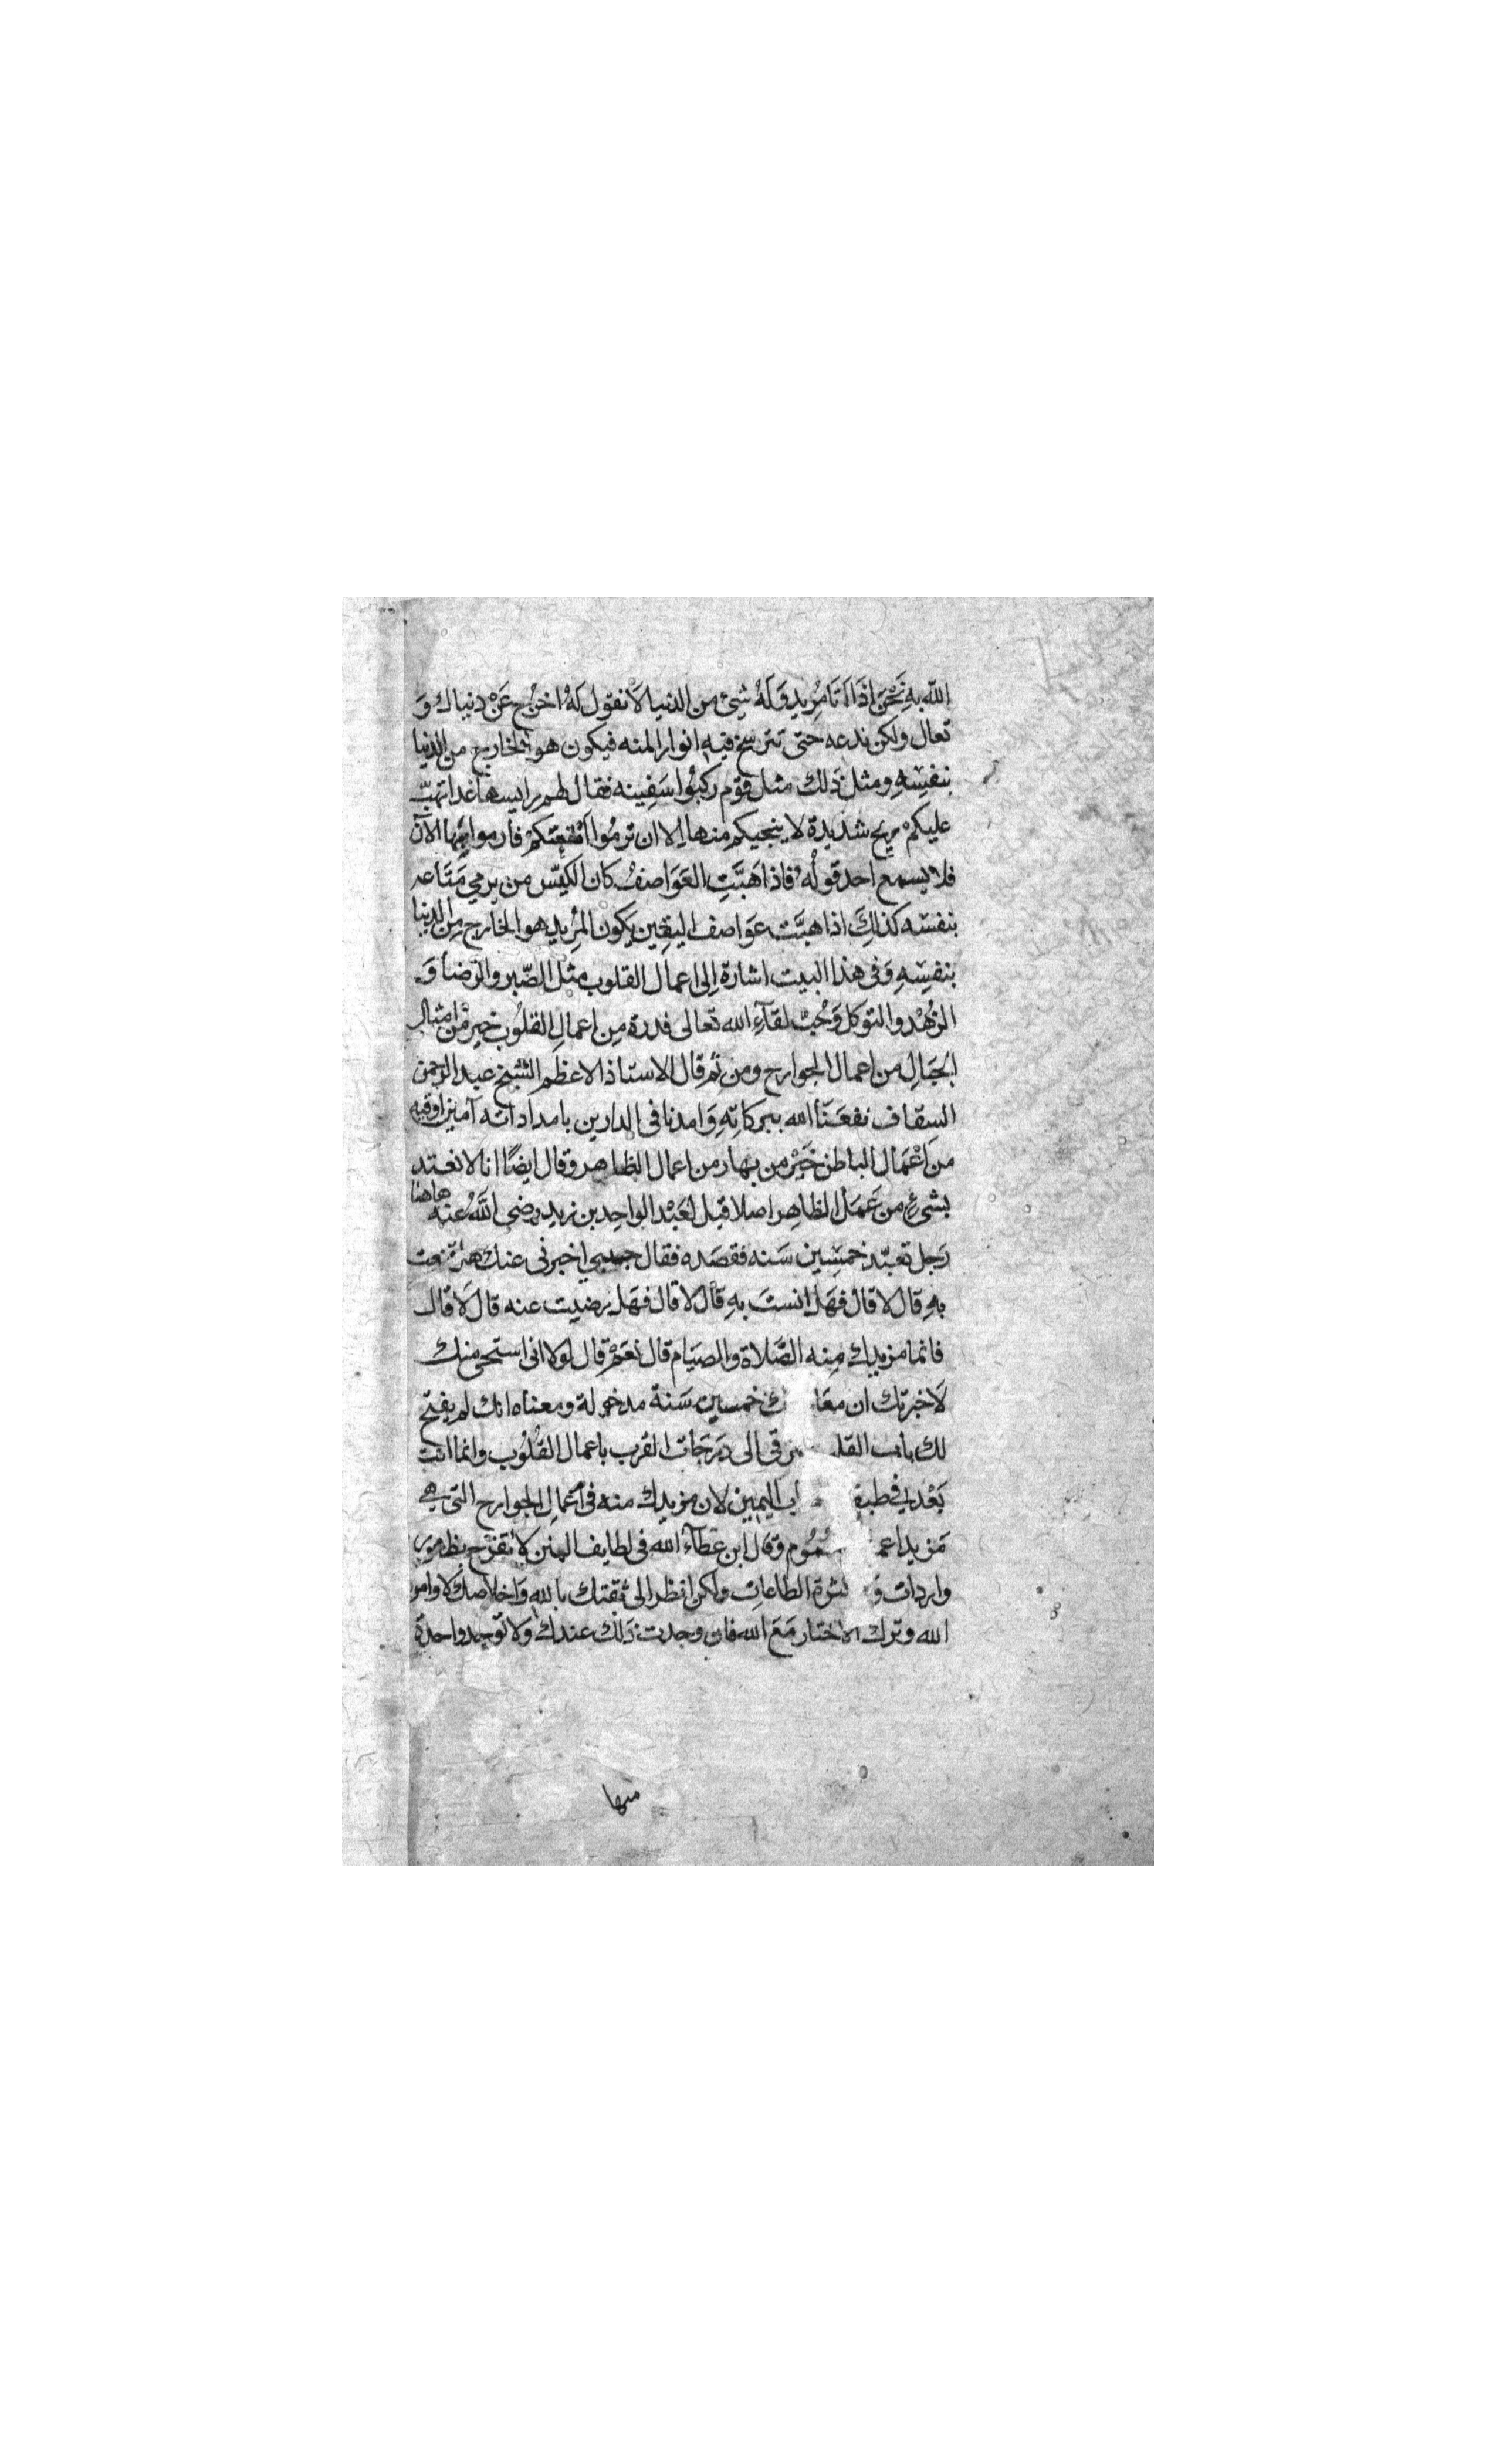 الله بِهِ نَحْنُ اِذَا اَتَانَا مُرِيد وَلَهُ شيئ من الدنيا لا نقول لَهُ اخرُج عَنْ دنياك وَ
تعال ولكن ندعه حتى تترسخ فيه انوار المنه فيكون هو الخارج من الدنيا
بنفسِهِ ومثل ذلك مثل قوْم ركبُوا سَفِينه فقال لهم رايسها غدا تهبّ
عليكمْ ريح شديدة لا ينجيكم منها اِلا ان ترمُوا امْتعتكُمْ فارموا بها الآن
فلا يسمع احد قوله فاذا هَبَّتِ العَوَاصفُ كان الكيّس من يرمي مَتَاعه
بنفسه كذلِكَ اذا هبَّت عوَاصف اليقين يَكون المُريد هو الخارج مِن الدنيا
بنفسِهِ وَفى هذا البيت اشارة اِلى اعمال القلوب مثل الصّبر والرّضا وَ
الزهْد والتوكل وَحُبّ لقآءِ الله تعالى فدرة مِن اعمالِ القلُوب خير مْن امثال
الجبَالِ من اعمال الجوارح ومن ثم قال الاستاذ الاعظم الشيخ عبد الرحمن
السقاف نفعَنَا الله ببركاتِهِ وَامدنا فى الدارين بامداداته آمين اوقيه
من اعْمَال الباطن خَيْر من بهار من اعمال الظاهر وقال ايضًا انا لا نعتد
بشيءٍ من عَمَل الظاهِر اصلا قيل لعَبْد الواحِد بن زيد رضى اللهُ عنه هاهنا
رَجل تعبّد خمسِين سَنه فقصَده فقال حبيبي اخبرنى عنك هل قنعت
بهِ قال لا قال فهَل انستَ بهِ قال لا قال فهَل رضيت عنه قال لَا قال
فانما مزيدك مِنه الصَّلاة والصيَام قال نعَمْ قال لولا انى استحى منك
لَاخبرتك ان معَا ك خمسين سَنة مدخولة ومعناه انك لم يفتح
لك باب القلـ ـرقى الى دَرَجَات القرب باعمال القُلُوب وانما انت
بَعْد في طبقـ ـاب اليمين لان مزيدك منه فى اعْمال الجوارح التى هي
مَزيد اعمـ ـمُوم وقال ابن عَطآء الله فى لطايف المنن لا تفرَح بظهور
واردات و كثرة الطاعات ولكن انظر الى ثقتك بالله وَاخلاصك لاوامر
الله وترك الاختيار مَعَ الله فان وجدت ذلك عندك ولا توجد واحدة
منها